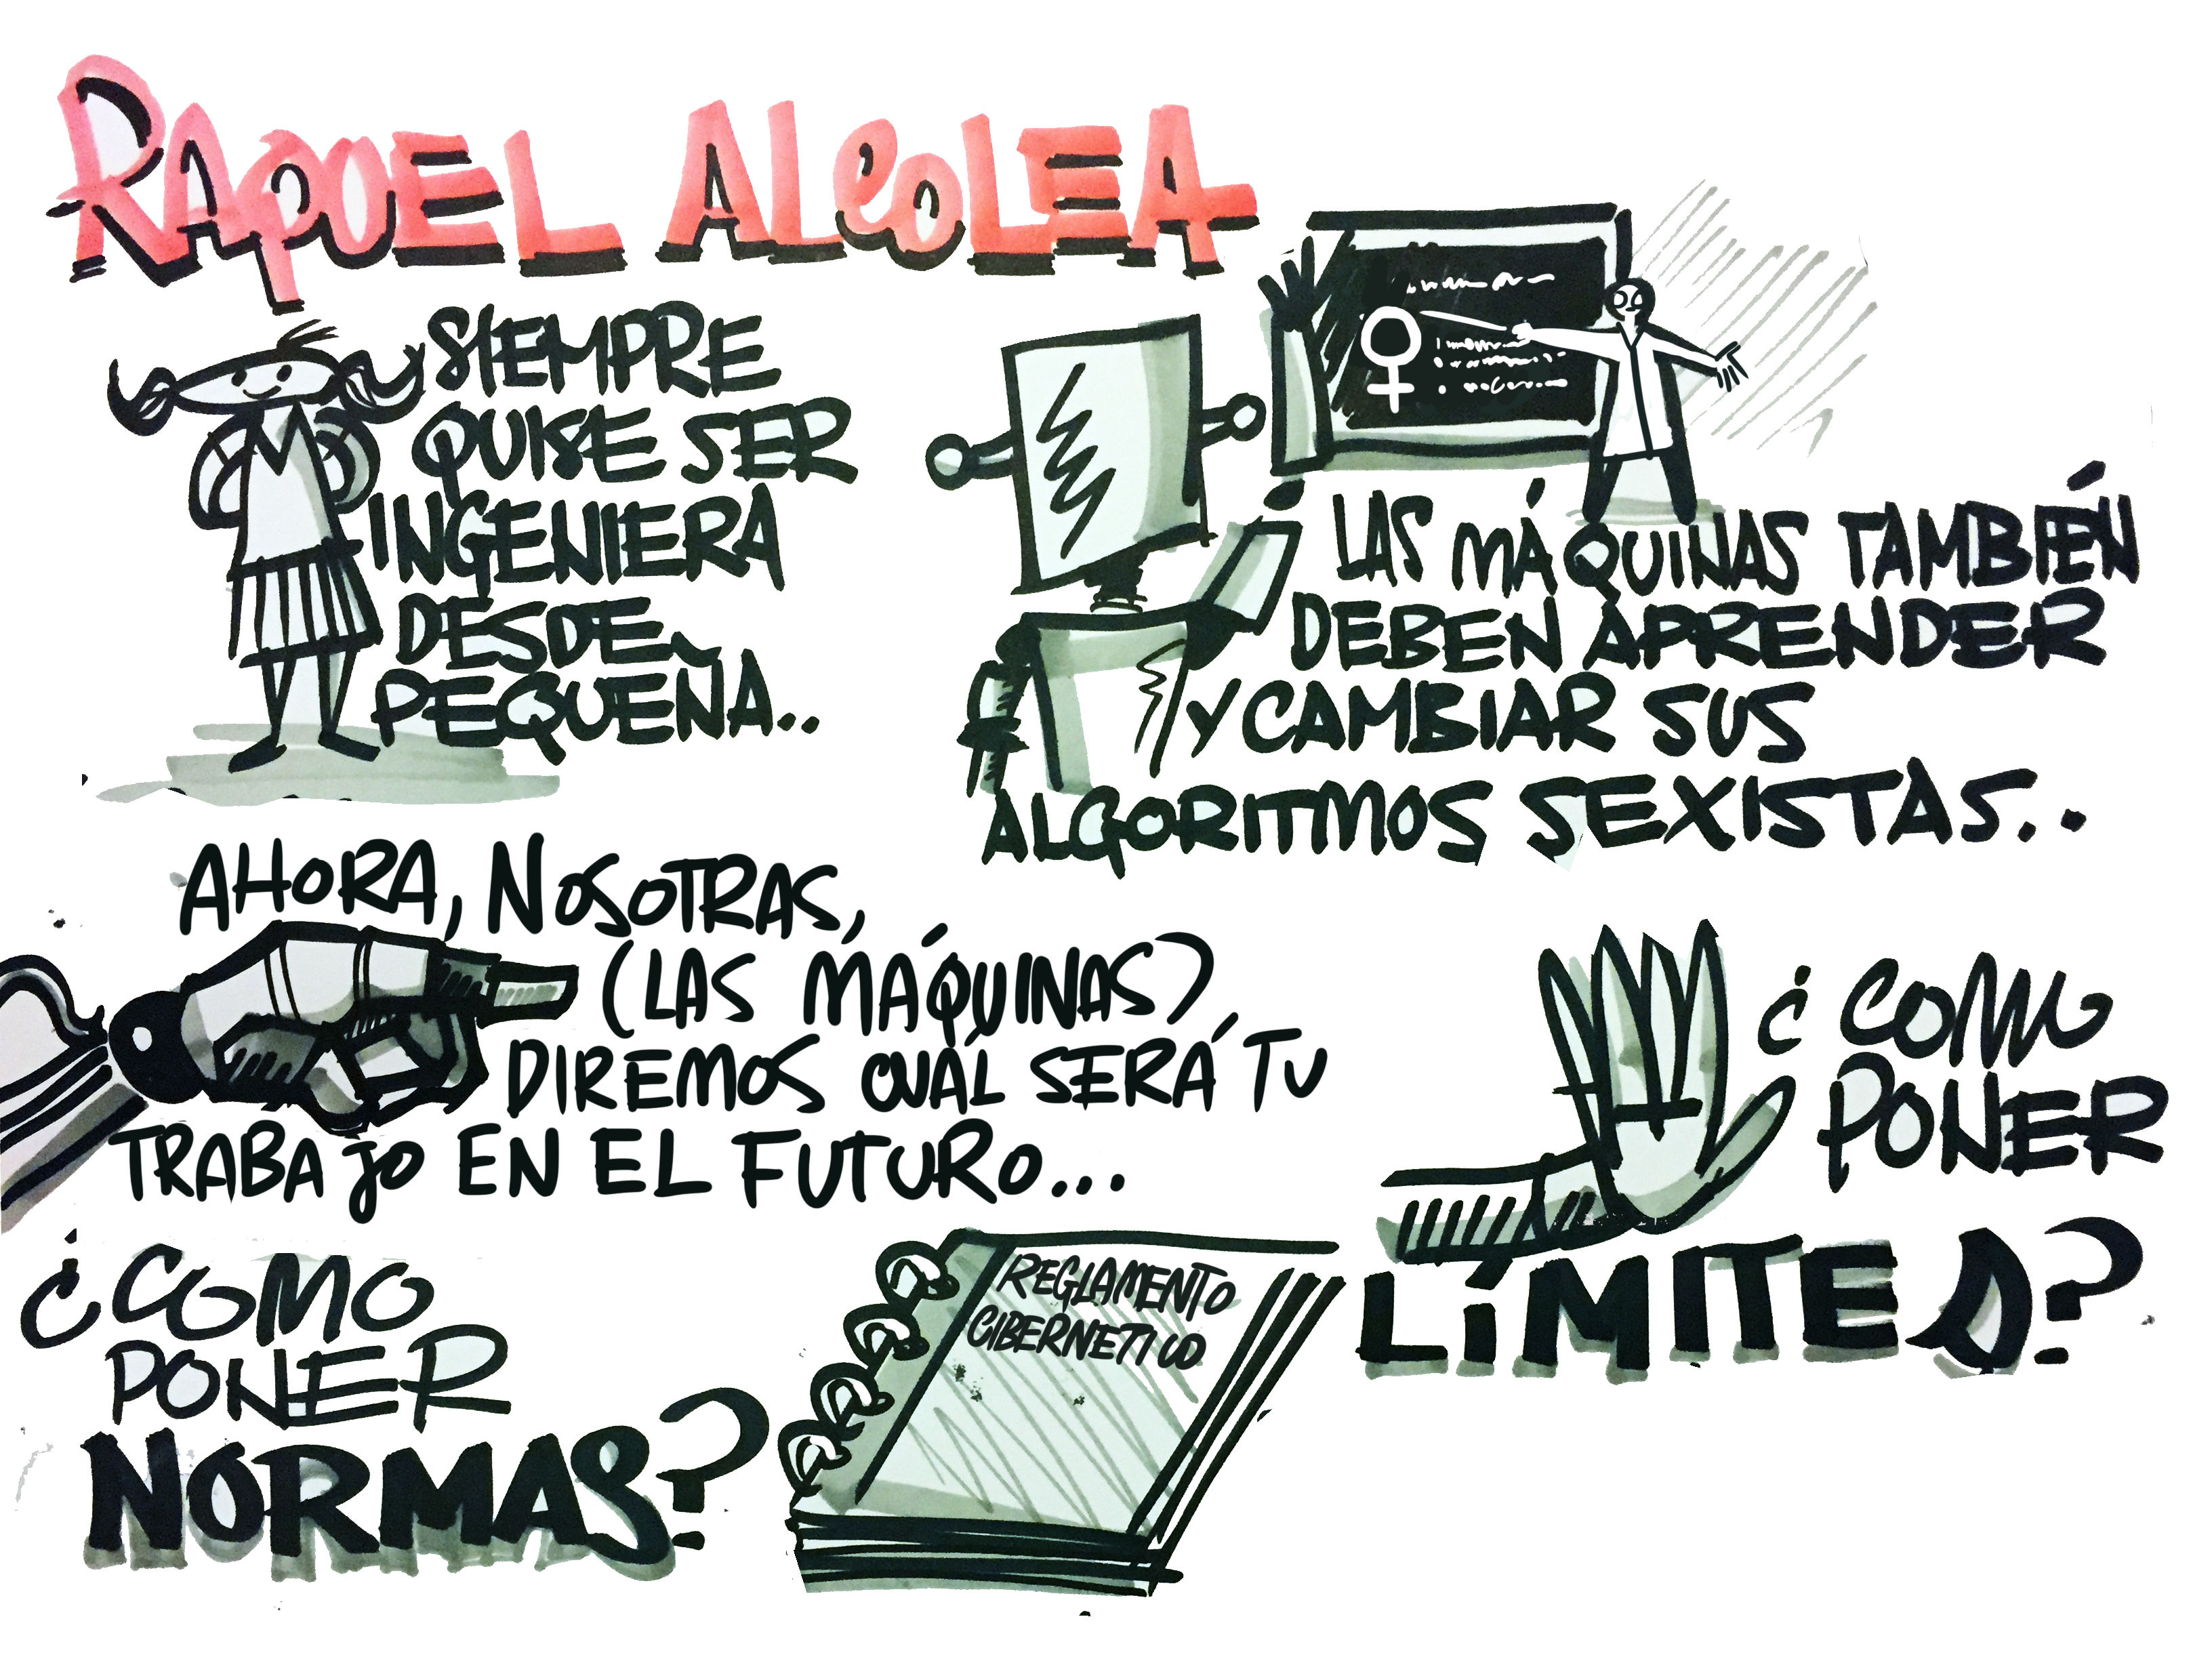 RAQUEL ALCOLEA
SIEMPRE
QUISE SER
INGENIERA
DESDE
PEQUEÑA..
LAS MÁQUINAS TAMBIÉN
DEBEN APRENDER
Y CAMBIAR SUS
ALGORITMOS SEXISTAS..
AHORA, NOSOTRAS,
(LAS MÁQUINAS)
DIREMOS CUÁL SERÁ TU
TRABAJO EN EL FUTURO...
¿COMO
PONER
LÍMITES?
¿COMO
PONER
NORMAS?
REGLAMENTO
CIBERNETICO